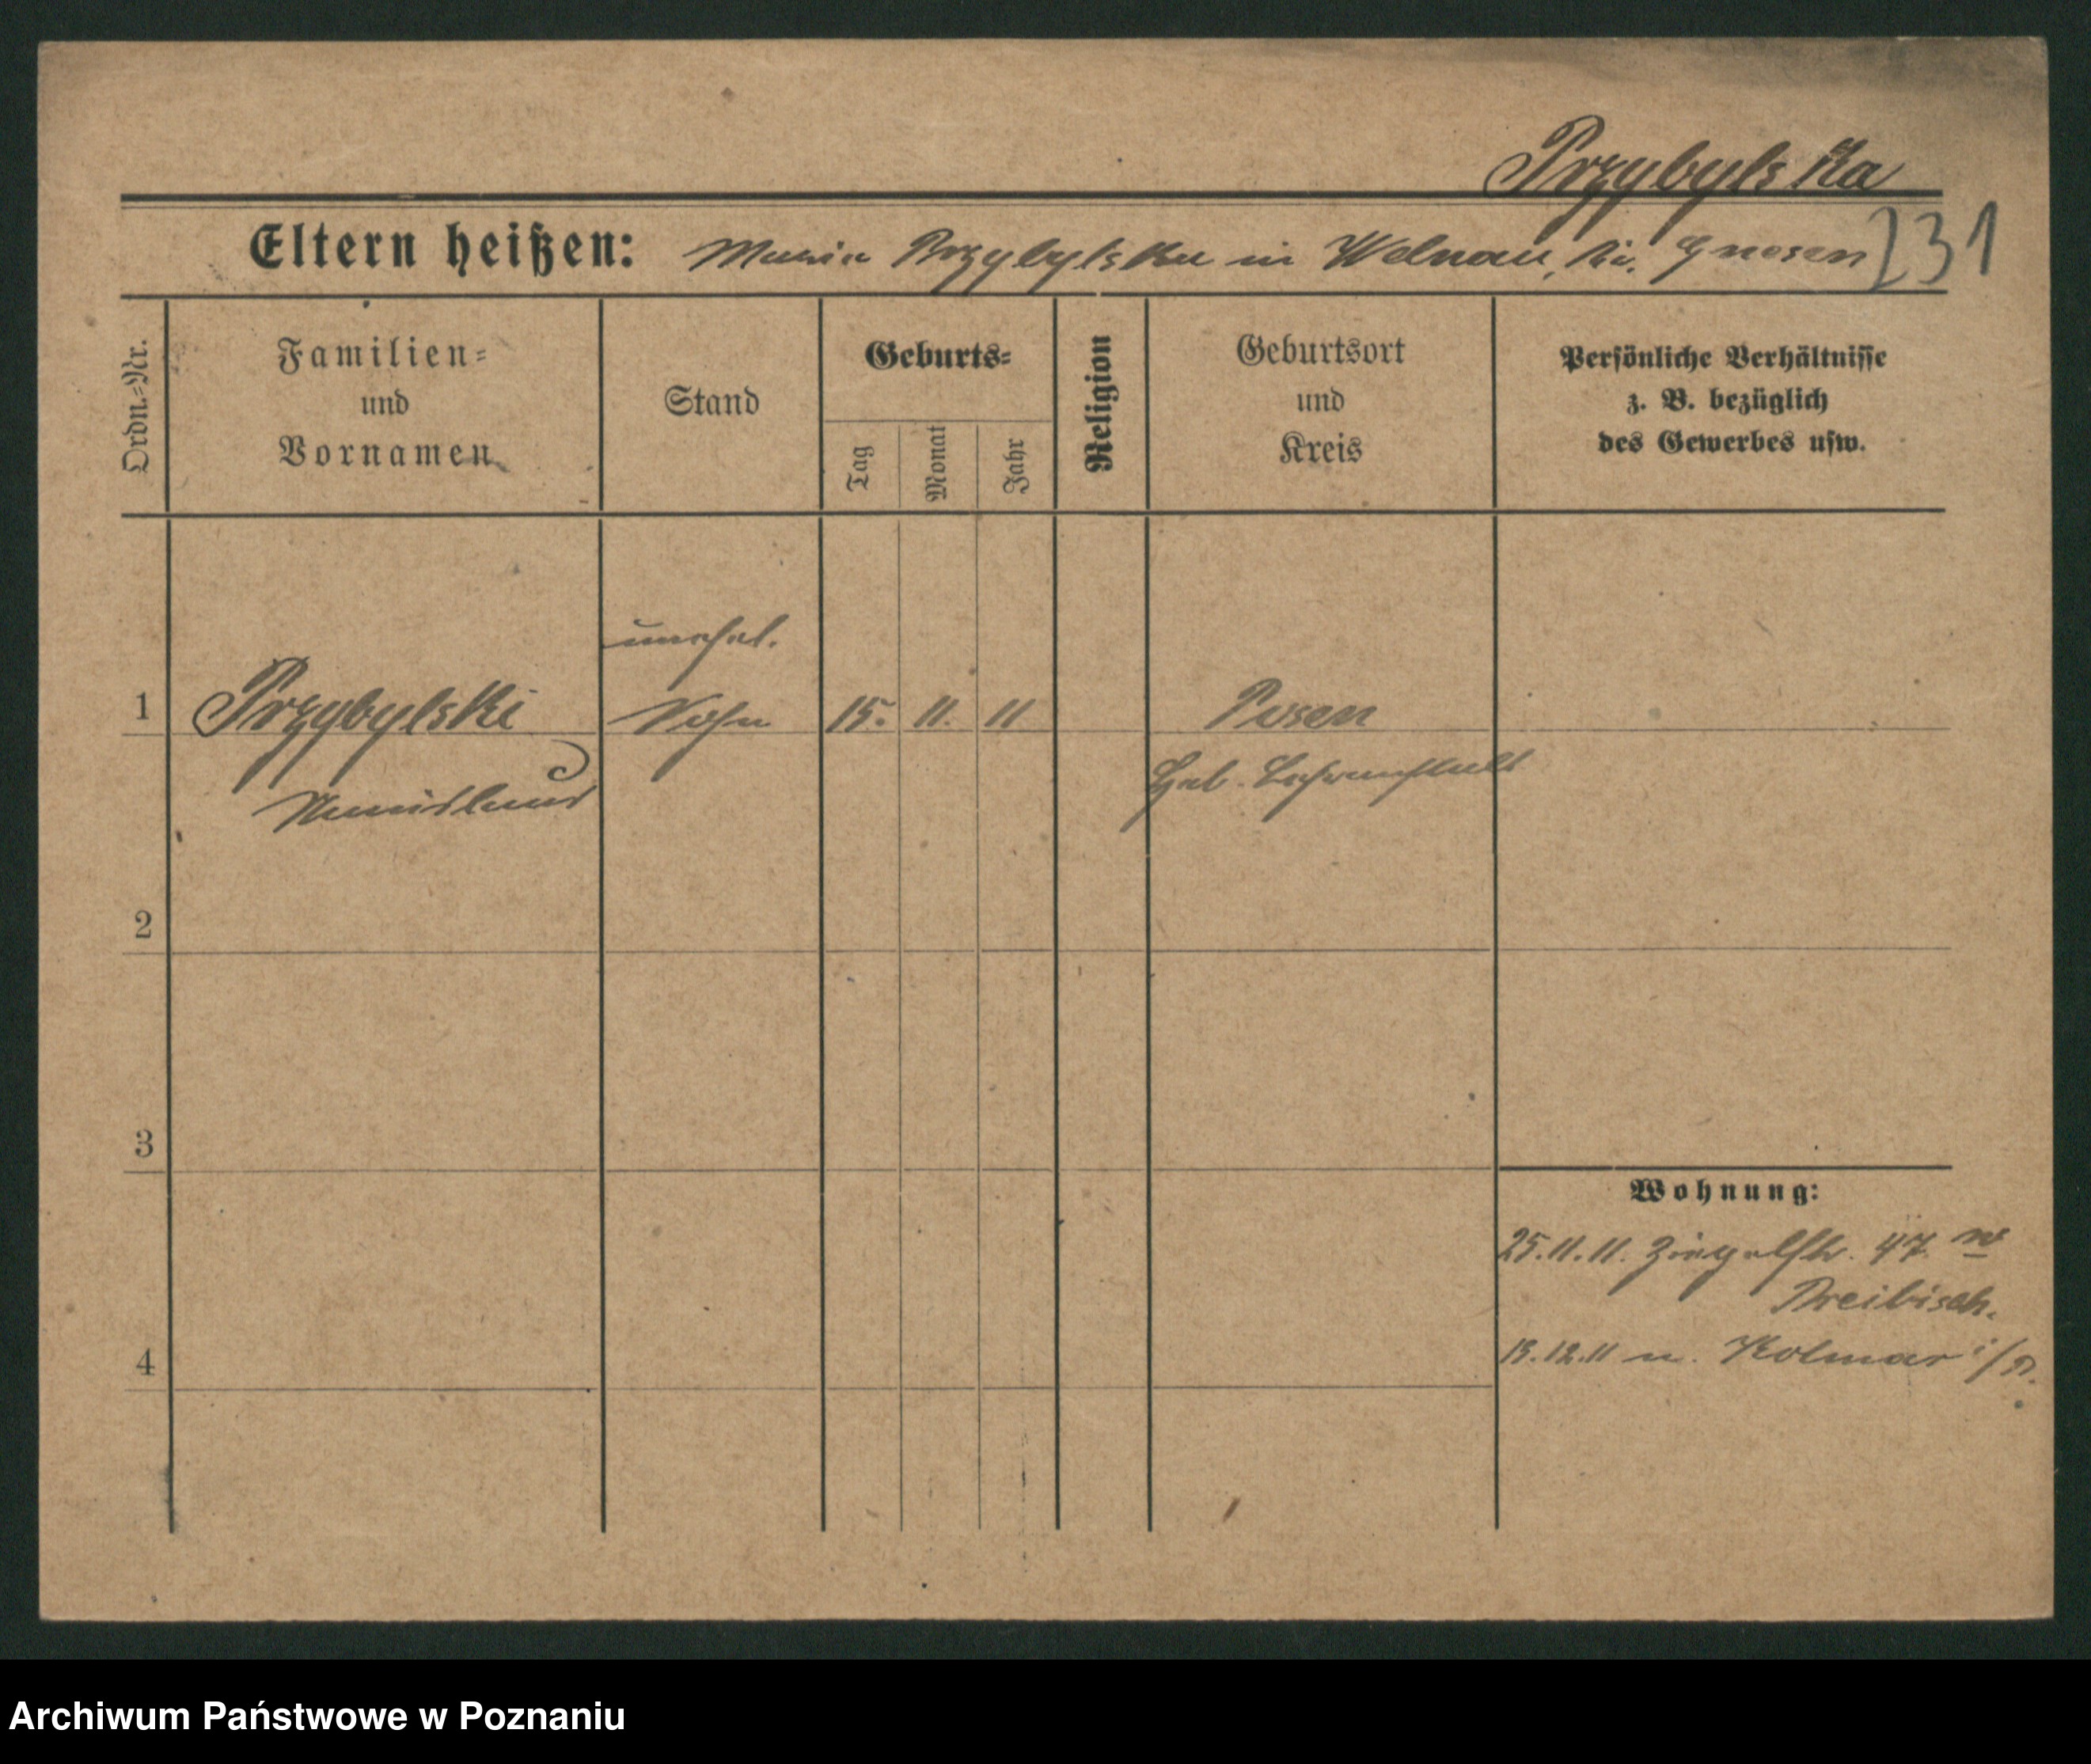 Przybylska
Eltern heißen: Maria Przybylska in Welnau, Kr. Gnesen
231
Ordn.-Nr.
Familien-
und
Vornamen
Stand
Geburts-
Tag
Monat
Jahr
Religion
Geburtsort
und
Kreis
Persönliche Verhältnisse
z. B. bezüglich
des Gewerbes usw.
unehel.
1 Przybylski Sohn 15. 11. 11 Posen
Stanislaus Heb. Lehranstalt
2
3
Wohnung:
25.11.11. Ziegelstr. 47
Dreibisch.
4 13.12.11 n. Kolmar i/P.
Archiwum Państwowe w Poznaniu